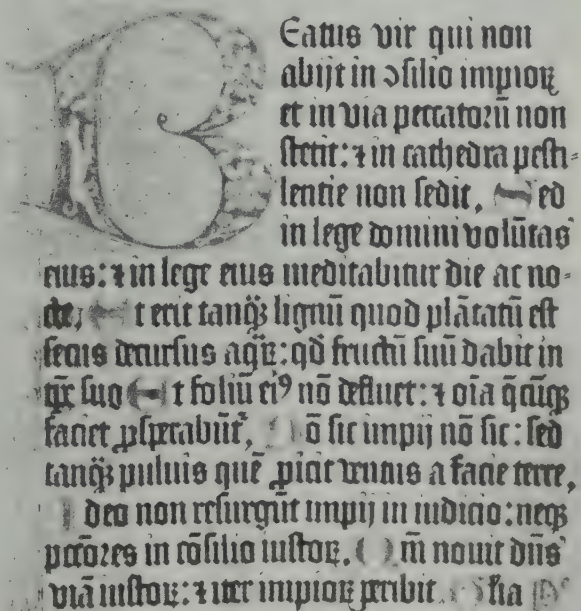 Beatus vir qui non
abijt in ↄsilio impioꝝ
et in via peccatorū non
stetit: ⁊ in cathedra pesti-
lentie non sedit, Sed
in lege domini volūtas
eius: ⁊ in lege eius meditabitur die ac no-
cte, Et erit tanqꝫ lignū quod plātatū est
secus decursus aqꝝ: qd̄ fructū suū dabit in
tp̄e suo Et foliū eiꝰ nō defluet: ⁊ oīa q̄cūqꝫ
faciet ꝓsperabūt᷑, Nō sic impij nō sic: sed
tanqꝫ puluis quē ꝓicit ventus a facie terre,
Ideo non resurgūt impij in iudicio: neqꝫ
pccōres in cōsilio iustoꝝ, Qm̄ nouit dn̄s
viā iustoꝝ: ⁊ iter impioꝝ peribit Glia P